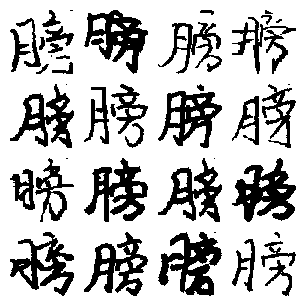 膀膀膀膀
膀膀膀膀
膀膀膀膀
膀膀膀膀